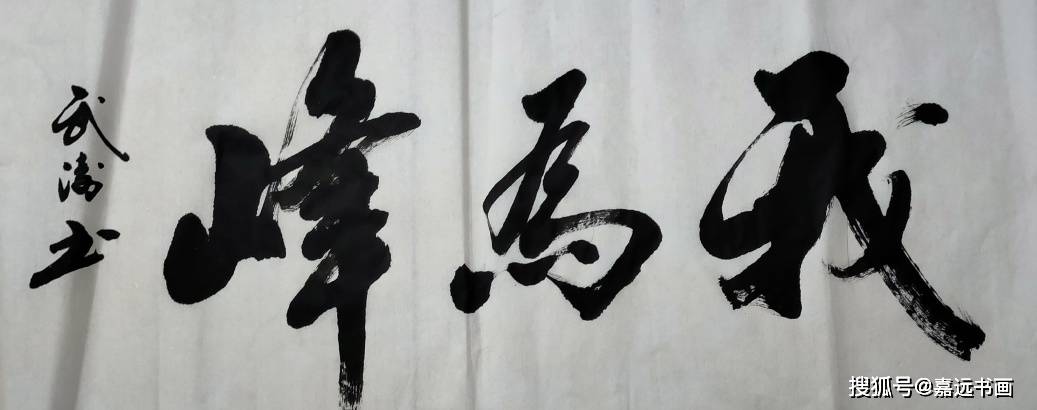 我為峰
武涛书
搜狐号@嘉远书画